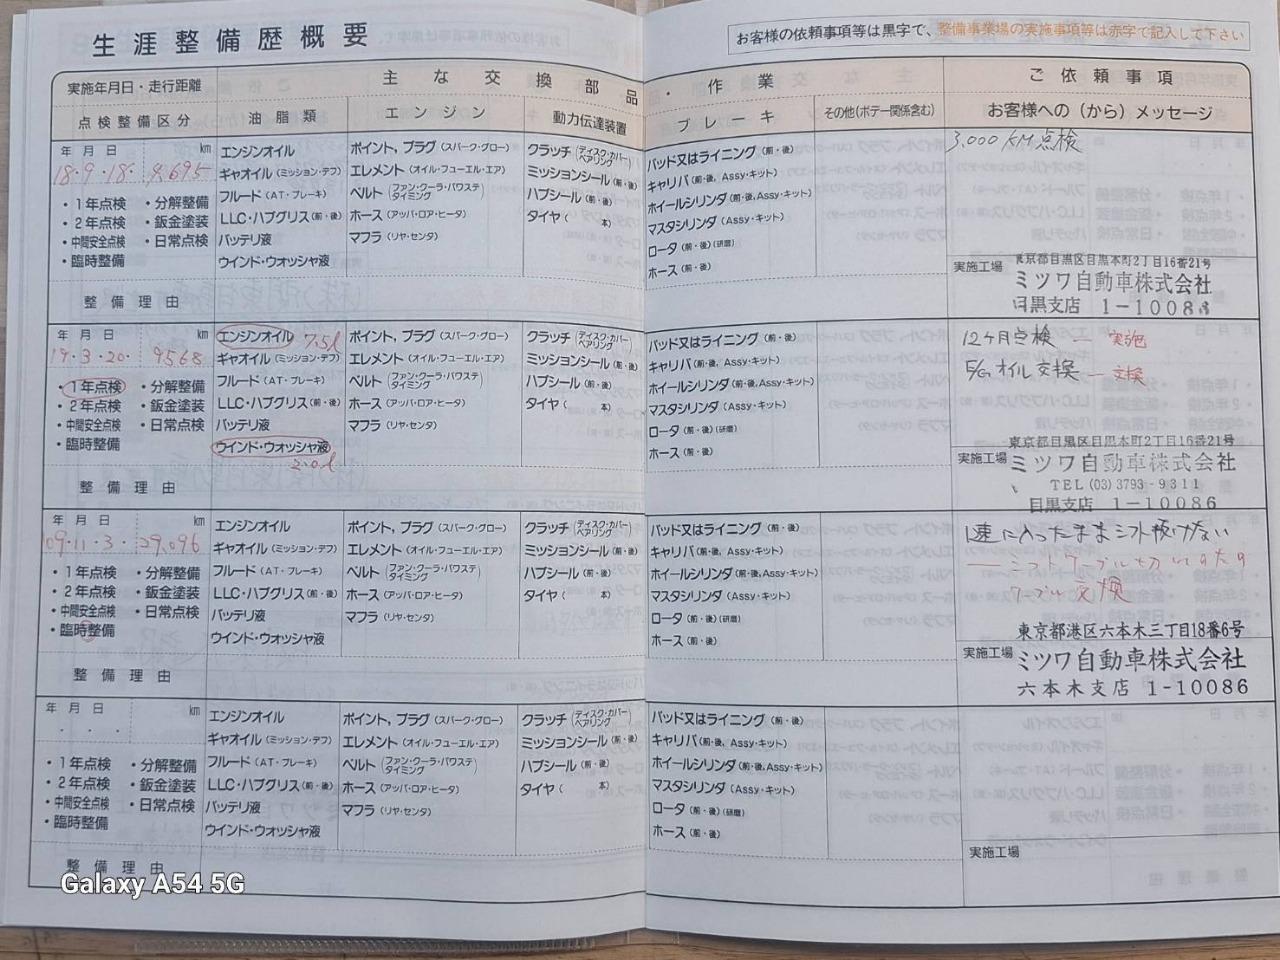 生涯整備歴概要
お客様の依頼事項等は黒字で、整備事業場の実施事項等は赤字で記入して下さい
実施年月日・走行距離
点検整備区分
主な交換部品・作業
油脂類
エンジン
動力伝達装置
ブレーキ
その他(ボデー関係含む)
ご依頼事項
お客様への(から)メッセージ
年 月 日 km
18・9・18・
・1年点検 ・分解整備
・2年点検 ・鈑金塗装
・中間安全点検 ・日常点検
・臨時整備
整備理由
エンジンオイル
ギャオイル(ミッション・デフ)
フルード(AT・ブレーキ)
LLC・ハブグリス(前・後)
バッテリ液
ウインド・ウオッシャ液
ポイント,プラグ(スパーク・グロー)
エレメント(オイル・フューエル・エア)
ベルト(ファン・クーラ・パワステ タイミング)
ホース(アッパ・ロア・ヒータ)
マフラ(リヤ・センタ)
クラッチ(ディスク・カバー ベアリング)
ミッションシール(前・後)
ハブシール(前・後)
タイヤ( 本)
パッド又はライニング(前・後)
キャリパ(前・後,Assy・キット)
ホイールシリンダ(前・後,Assy・キット)
マスタシリンダ(Assy・キット)
ロータ(前・後)(研磨)
ホース(前・後)
3,000KM点検
実施工場
東京都目黒区目黒本町2丁目16番21号
ミツワ自動車株式会社
目黒支店 1-10086
年 月 日 km
19・3・20・ 9568
・1年点検 ・分解整備
・2年点検 ・鈑金塗装
・中間安全点検 ・日常点検
・臨時整備
整備理由
エンジンオイル 7.5ℓ
ギャオイル(ミッション・デフ)
フルード(AT・ブレーキ)
LLC・ハブグリス(前・後)
バッテリ液
ウインド・ウオッシャ液
2.0ℓ
ポイント,プラグ(スパーク・グロー)
エレメント(オイル・フューエル・エア)
ベルト(ファン・クーラ・パワステ タイミング)
ホース(アッパ・ロア・ヒータ)
マフラ(リヤ・センタ)
クラッチ(ディスク・カバー ベアリング)
ミッションシール(前・後)
ハブシール(前・後)
タイヤ( 本)
パッド又はライニング(前・後)
キャリパ(前・後,Assy・キット)
ホイールシリンダ(前・後,Assy・キット)
マスタシリンダ(Assy・キット)
ロータ(前・後)(研磨)
ホース(前・後)
12ヶ月点検 — 実施
E/Gオイル交換 — 交換
実施工場
東京都目黒区目黒本町2丁目16番21号
ミツワ自動車株式会社
TEL(03)3793-9311
目黒支店 1-10086
年 月 日 km
09・11・3・ 29,096
・1年点検 ・分解整備
・2年点検 ・鈑金塗装
・中間安全点検 ・日常点検
・臨時整備
整備理由
エンジンオイル
ギャオイル(ミッション・デフ)
フルード(AT・ブレーキ)
LLC・ハブグリス(前・後)
バッテリ液
ウインド・ウオッシャ液
ポイント,プラグ(スパーク・グロー)
エレメント(オイル・フューエル・エア)
ベルト(ファン・クーラ・パワステ タイミング)
ホース(アッパ・ロア・ヒータ)
マフラ(リヤ・センタ)
クラッチ(ディスク・カバー ベアリング)
ミッションシール(前・後)
ハブシール(前・後)
タイヤ( 本)
パッド又はライニング(前・後)
キャリパ(前・後,Assy・キット)
ホイールシリンダ(前・後,Assy・キット)
マスタシリンダ(Assy・キット)
ロータ(前・後)(研磨)
ホース(前・後)
1速に入ったままシフト抜けない
— シフトケーブル切れの為
ケーブル交換
実施工場
東京都港区六本木三丁目18番6号
ミツワ自動車株式会社
六本木支店 1-10086
年 月 日 km
・1年点検 ・分解整備
・2年点検 ・鈑金塗装
・中間安全点検 ・日常点検
・臨時整備
整備理由
エンジンオイル
ギャオイル(ミッション・デフ)
フルード(AT・ブレーキ)
LLC・ハブグリス(前・後)
バッテリ液
ウインド・ウオッシャ液
ポイント,プラグ(スパーク・グロー)
エレメント(オイル・フューエル・エア)
ベルト(ファン・クーラ・パワステ タイミング)
ホース(アッパ・ロア・ヒータ)
マフラ(リヤ・センタ)
クラッチ(ディスク・カバー ベアリング)
ミッションシール(前・後)
ハブシール(前・後)
タイヤ( 本)
パッド又はライニング(前・後)
キャリパ(前・後,Assy・キット)
ホイールシリンダ(前・後,Assy・キット)
マスタシリンダ(Assy・キット)
ロータ(前・後)(研磨)
ホース(前・後)
実施工場
Galaxy A54 5G